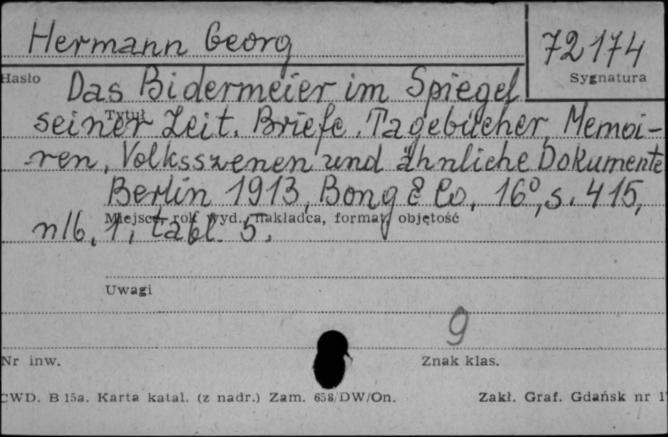 Hermann Georg
72174
Hasło
Sygnatura
Das Bidermeier im Spiegel
Tytuł
seiner Zeit. Briefe, Tagebücher, Memoi-
ren, Volksszenen und ähnliche Dokumente
Berlin 1913, Bong & Co, 16°, s. 415,
Miejsce, rok wyd., nakładca, format, objętość
nlb, 1, tabl. 5.
Uwagi
9
Nr inw.
Znak klas.
CWD. B 15a. Karta katal. (z nadr.) Zam. 658/DW/On.
Zakł. Graf. Gdańsk nr 1